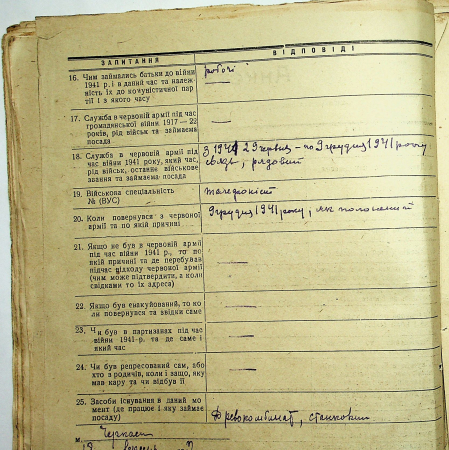 ЗАПИТАННЯ
ВІДПОВІДІ
16. Чим займались батьки до війни
1941 р. і в даний час та належ-
ність їх до комуністичної пар
тії і з якого часу
робочі
17. Служба в червоній армії під час
громадянської війни 1917—22
років, рід військ та займаєма
посада
18. Служба в червоній армії під
час війни 1941 року, який час,
рід військ, останне військове
звання та займаєма посада
З 1941 29 червня – по 9 грудня 1941 року
связь, рядовий
19. Військова спеціяльність
№ (ВУС)
20. Коли повернувся з червоної
армії та по якій причині
9 грудня 1941 року, як
21. Якщо не був в червоній армії
під час війни 1941 р., то по
якій причині та де перебував
підчас відходу червоної армії
(чим може підтвердити, а коли
свідками то їх адреса)
22. Якщо був евакуйований, то ко
ли повернувся та звідки саме
23. Чи був в партизанах під час
війни 1941 р. та де саме і
який час
24. Чи був репресований сам, або
хто з родичів, коли і защо, яку
мав кару та чи відбув її
25. Засоби існування в даний мо
мент (де працює і яку займає
посаду)
Древокомбінат,
м. Черкаси